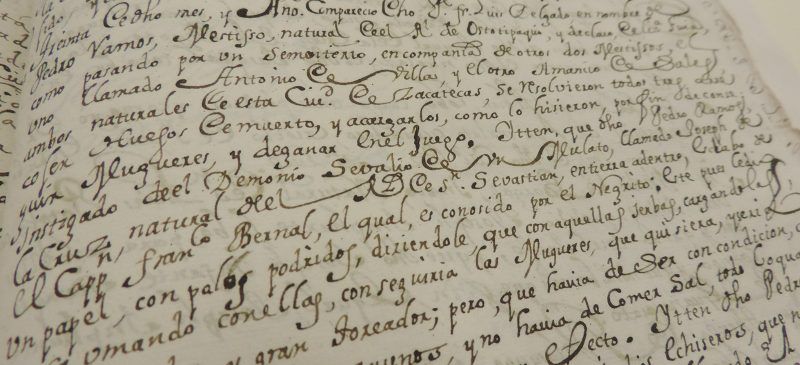 dido y
treinta y ocho mes, y Año. Comparecio Dho P.e fr. Luis Delgado en nombre de
Pedro Ramos, Mestisso, natural de el R.l de Ostotipaqui, y declaro
como pasando por un Sementerio, en compañia de otros dos Mestissos, el
uno llamado Antonio de Sillas, y el otro Amanico de Sales
ambos naturales de esta Ciu.d de Zacatecas, se resolvieron todos tres
coser Huesos de muerto, y a cargarlos, como lo hisieron, por fin de conse
guir Mugueres, y de ganar en el Juego. Itten, que dho Pedro Ramos,
instigado de el Demonio se valio de un Mulato, llamado Joseph de
la Cruz, natural del R.l de S.n Sebastian, en tierra adentro, Esclabo de
el Capp.n fran.co Bernal, el qual, es conosido por el Negrito. Este pues le dio
un papel, con palos podridos, diziendole, que con aquellas yerbas, cargandolas
y tomando con ellas, conseguiria las Mugueres, que quisiera, y seria
y gran toreador; pero, que havia de Ser con condicion,
y no havia de Comer Sal, todo lo qual
fecto. Itten dho Pedro
Echiseros, que